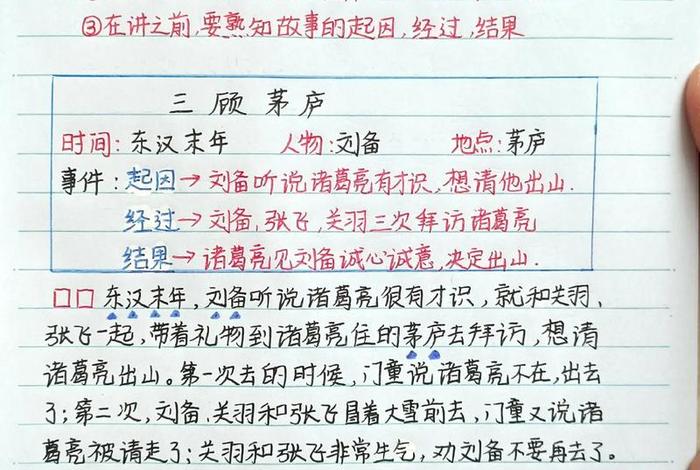 ③在讲之前,要熟知故事的起因,经过,结果
三顾茅庐
时间:东汉末年 人物:刘备 地点:茅庐
事件:起因→刘备听说诸葛亮有才识,想请他出山.
经过→刘备、张飞,关羽三次拜访诸葛亮
结果→诸葛亮见刘备诚心诚意,决定出山.
东汉末年,刘备听说诸葛亮很有才识,就和关羽、
张飞一起,带着礼物到诸葛亮住的茅庐去拜访,想请
诸葛亮出山。第一次去的时候,门童说诸葛亮不在,出去
了;第二次,刘备、关羽和张飞冒着大雪前去,门童又说诸
葛亮被请走了;关羽和张飞非常生气,劝刘备不要再去了。